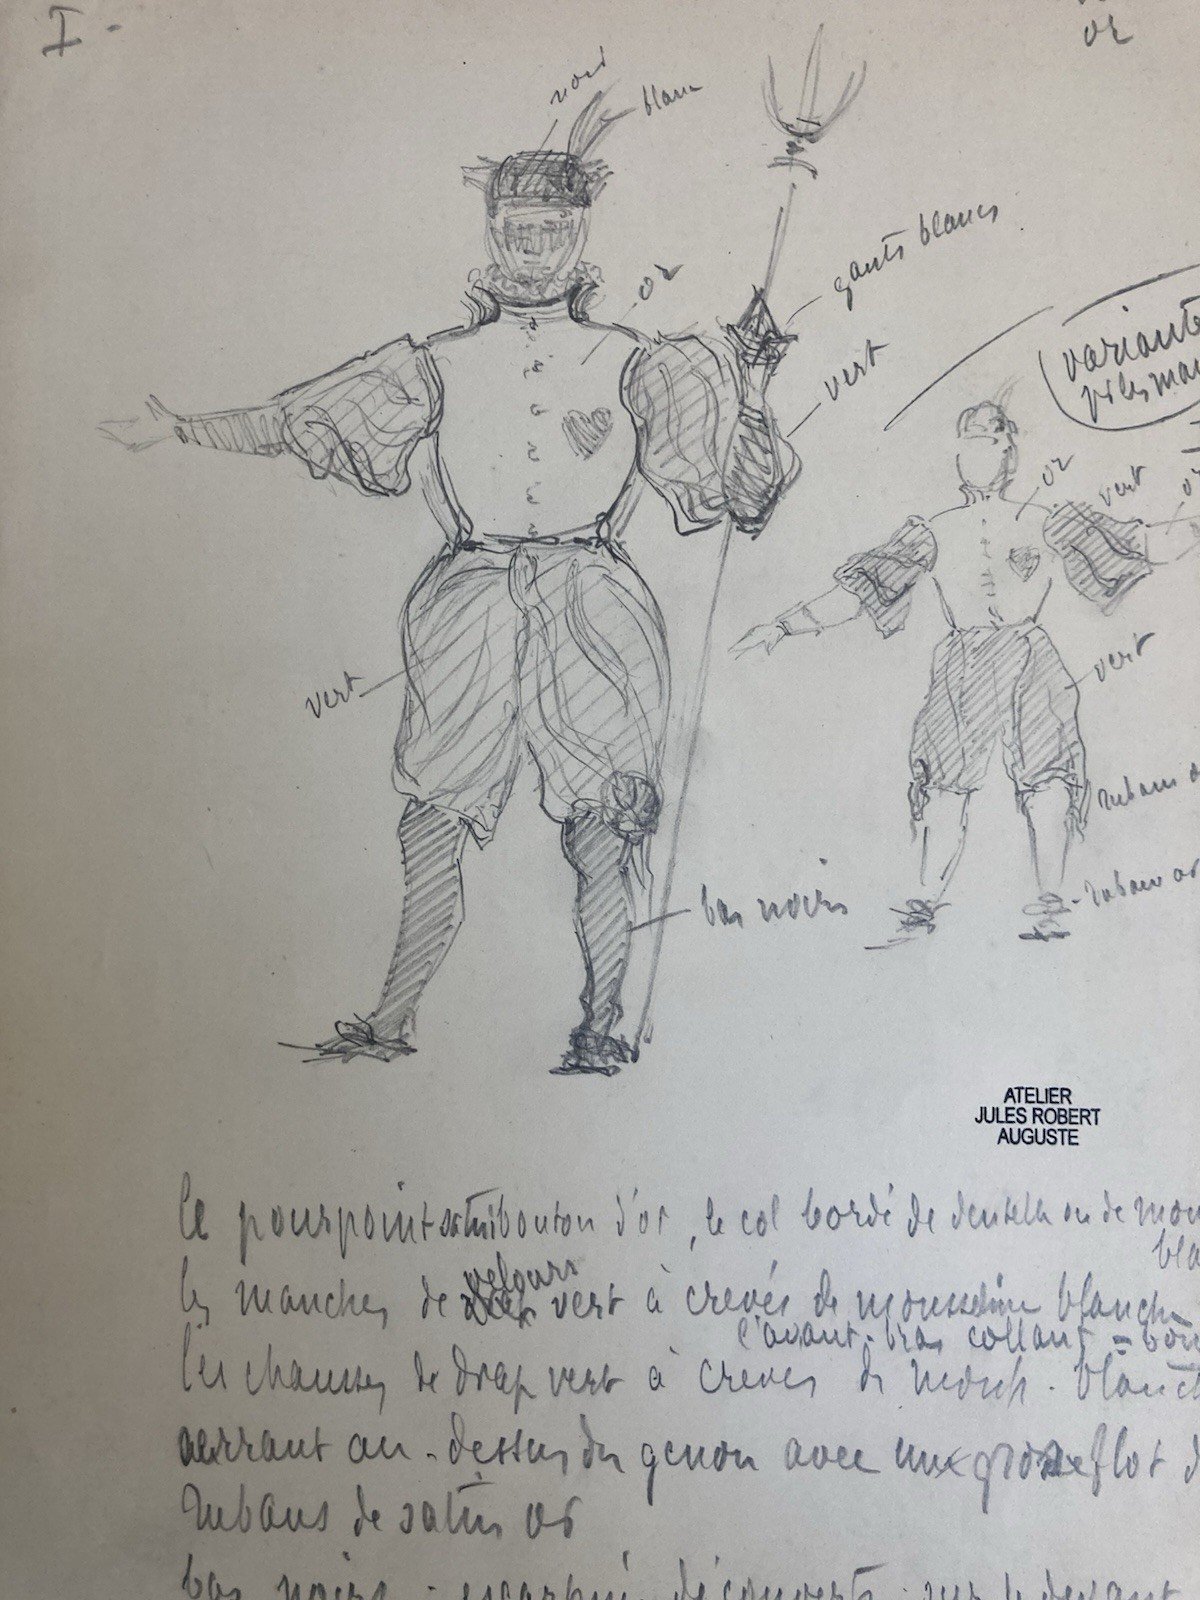 I -
or
noir
blanc
gants blancs
or
vert
variante
or
vert
or
vert
vert
rubans
bas noirs
ruban or
ATELIER
JULES ROBERT
AUGUSTE
le pourpoint satin bouton d'or, le col bordé de dentelle ou de mou
bla
les manches de velours vert à crevés de mousseline blanche
l'avant-bras collant = bou
les chausses de drap vert à crevés de mouss. blanch
serrant au-dessus du genou avec un gros flot d
rubans de satin or
bas noirs - escarpins découverts sur le devant